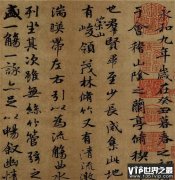 永和九年歲在癸丑暮春
會稽山陰之蘭亭脩禊
也羣賢畢至少長咸集此地
崇山
峻領茂林脩竹又有清流
湍暎帶左右引以為流觴
列坐其次雖無絲竹管弦之
盛一觴一詠亦足以暢敘幽情
VTP世界之最